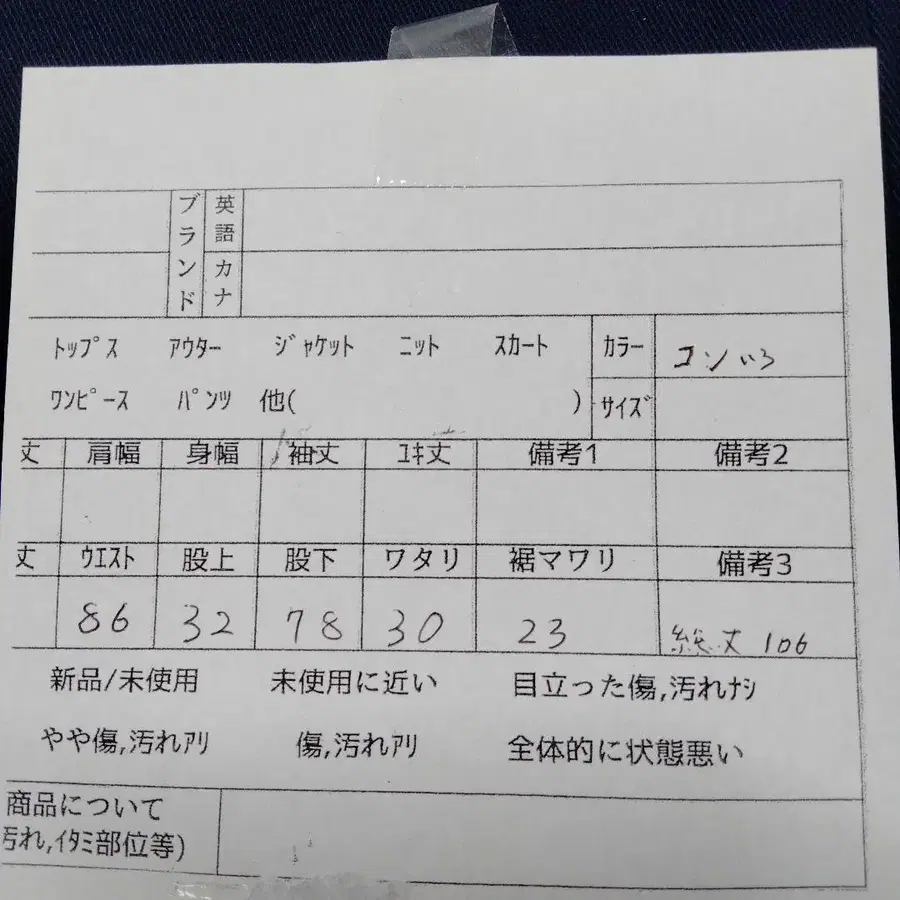 ブランド
英語
カナ
トップス アウター ジャケット ニット スカート カラー コンいろ
ワンピース パンツ 他( ) サイズ
丈 肩幅 身幅 袖丈 ユキ丈 備考1 備考2
丈 ウエスト 股上 股下 ワタリ 裾マワリ 備考3
86 32 78 30 23 総丈 106
新品/未使用 未使用に近い 目立った傷,汚れナシ
やや傷,汚れアリ 傷,汚れアリ 全体的に状態悪い
商品について
汚れ,イタミ部位等)